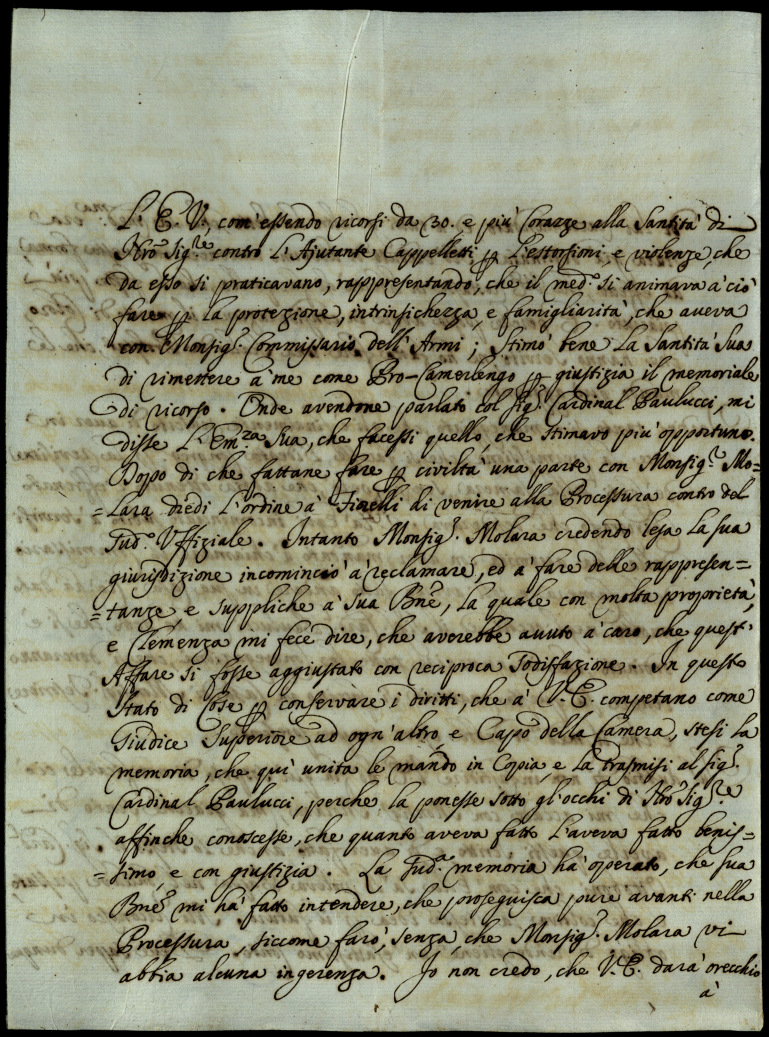 L. E. V., com'essendo ricorsi da 30. e più Corazze alla Santità di
Nrõ Sig.re contro L'Ajutante Cappelletti p L'estorsioni e violenze, che
da esso si praticavano, rappresentando, che il med.o si animava à ciò
fare p la protezione, intrinsichezza, e famigliarità, che aveva
con Monsig.r Commissario dell'Armi; Stimò bene La Santità Sua
di rimettere à me come Pro-Camerlengo p giustizia il memoriale
di ricorso. Onde avendone parlato col Sig.r Cardinal Paulucci, mi
disse L'Em.za Sua, che facessi quello, che stimavo più opportuno.
Doppo di che fattane fare p civiltà una parte con Monsig.r Mo=
=lara diedi L'ordine à Finelli di venire alla Processura contro del
Sud.o Uffiziale. Intanto Monsig.r Molara credendo lesa La sua
giurisdizione incominciò à reclamare, ed à fare delle rappresen=
=tanze, e suppliche à Sua Bnẽ, La quale con molta proprietà,
e Clemenza mi fece dire, che averebbe avuto à caro, che quest'
Affare si fosse aggiustato con reciproca Sodisfazione. In questo
Stato di Cose p conservare i diritti, che à V. E. competano come
Giudice Superiore ad ogn'altro e Capo della Camera, stesi La
memoria, che quì unita le mando in Copia, e La trasmisi al Sig.r
Cardinal Paulucci, perche la ponesse sotto gl'occhi di Nrõ Sig.re
affinche conoscesse, che quanto aveva fatto L'aveva fatto benis=
=simo, e con giustizia. La Sud.a memoria hà operato, che sua
Bnẽ mi hà fatto intendere, che proseguisca pure avanti nella
Processura, siccome farò, senza, che Monsig.r Molara vi
abbia alcuna ingerenza. Io non credo, che V. E. darà orecchio
à